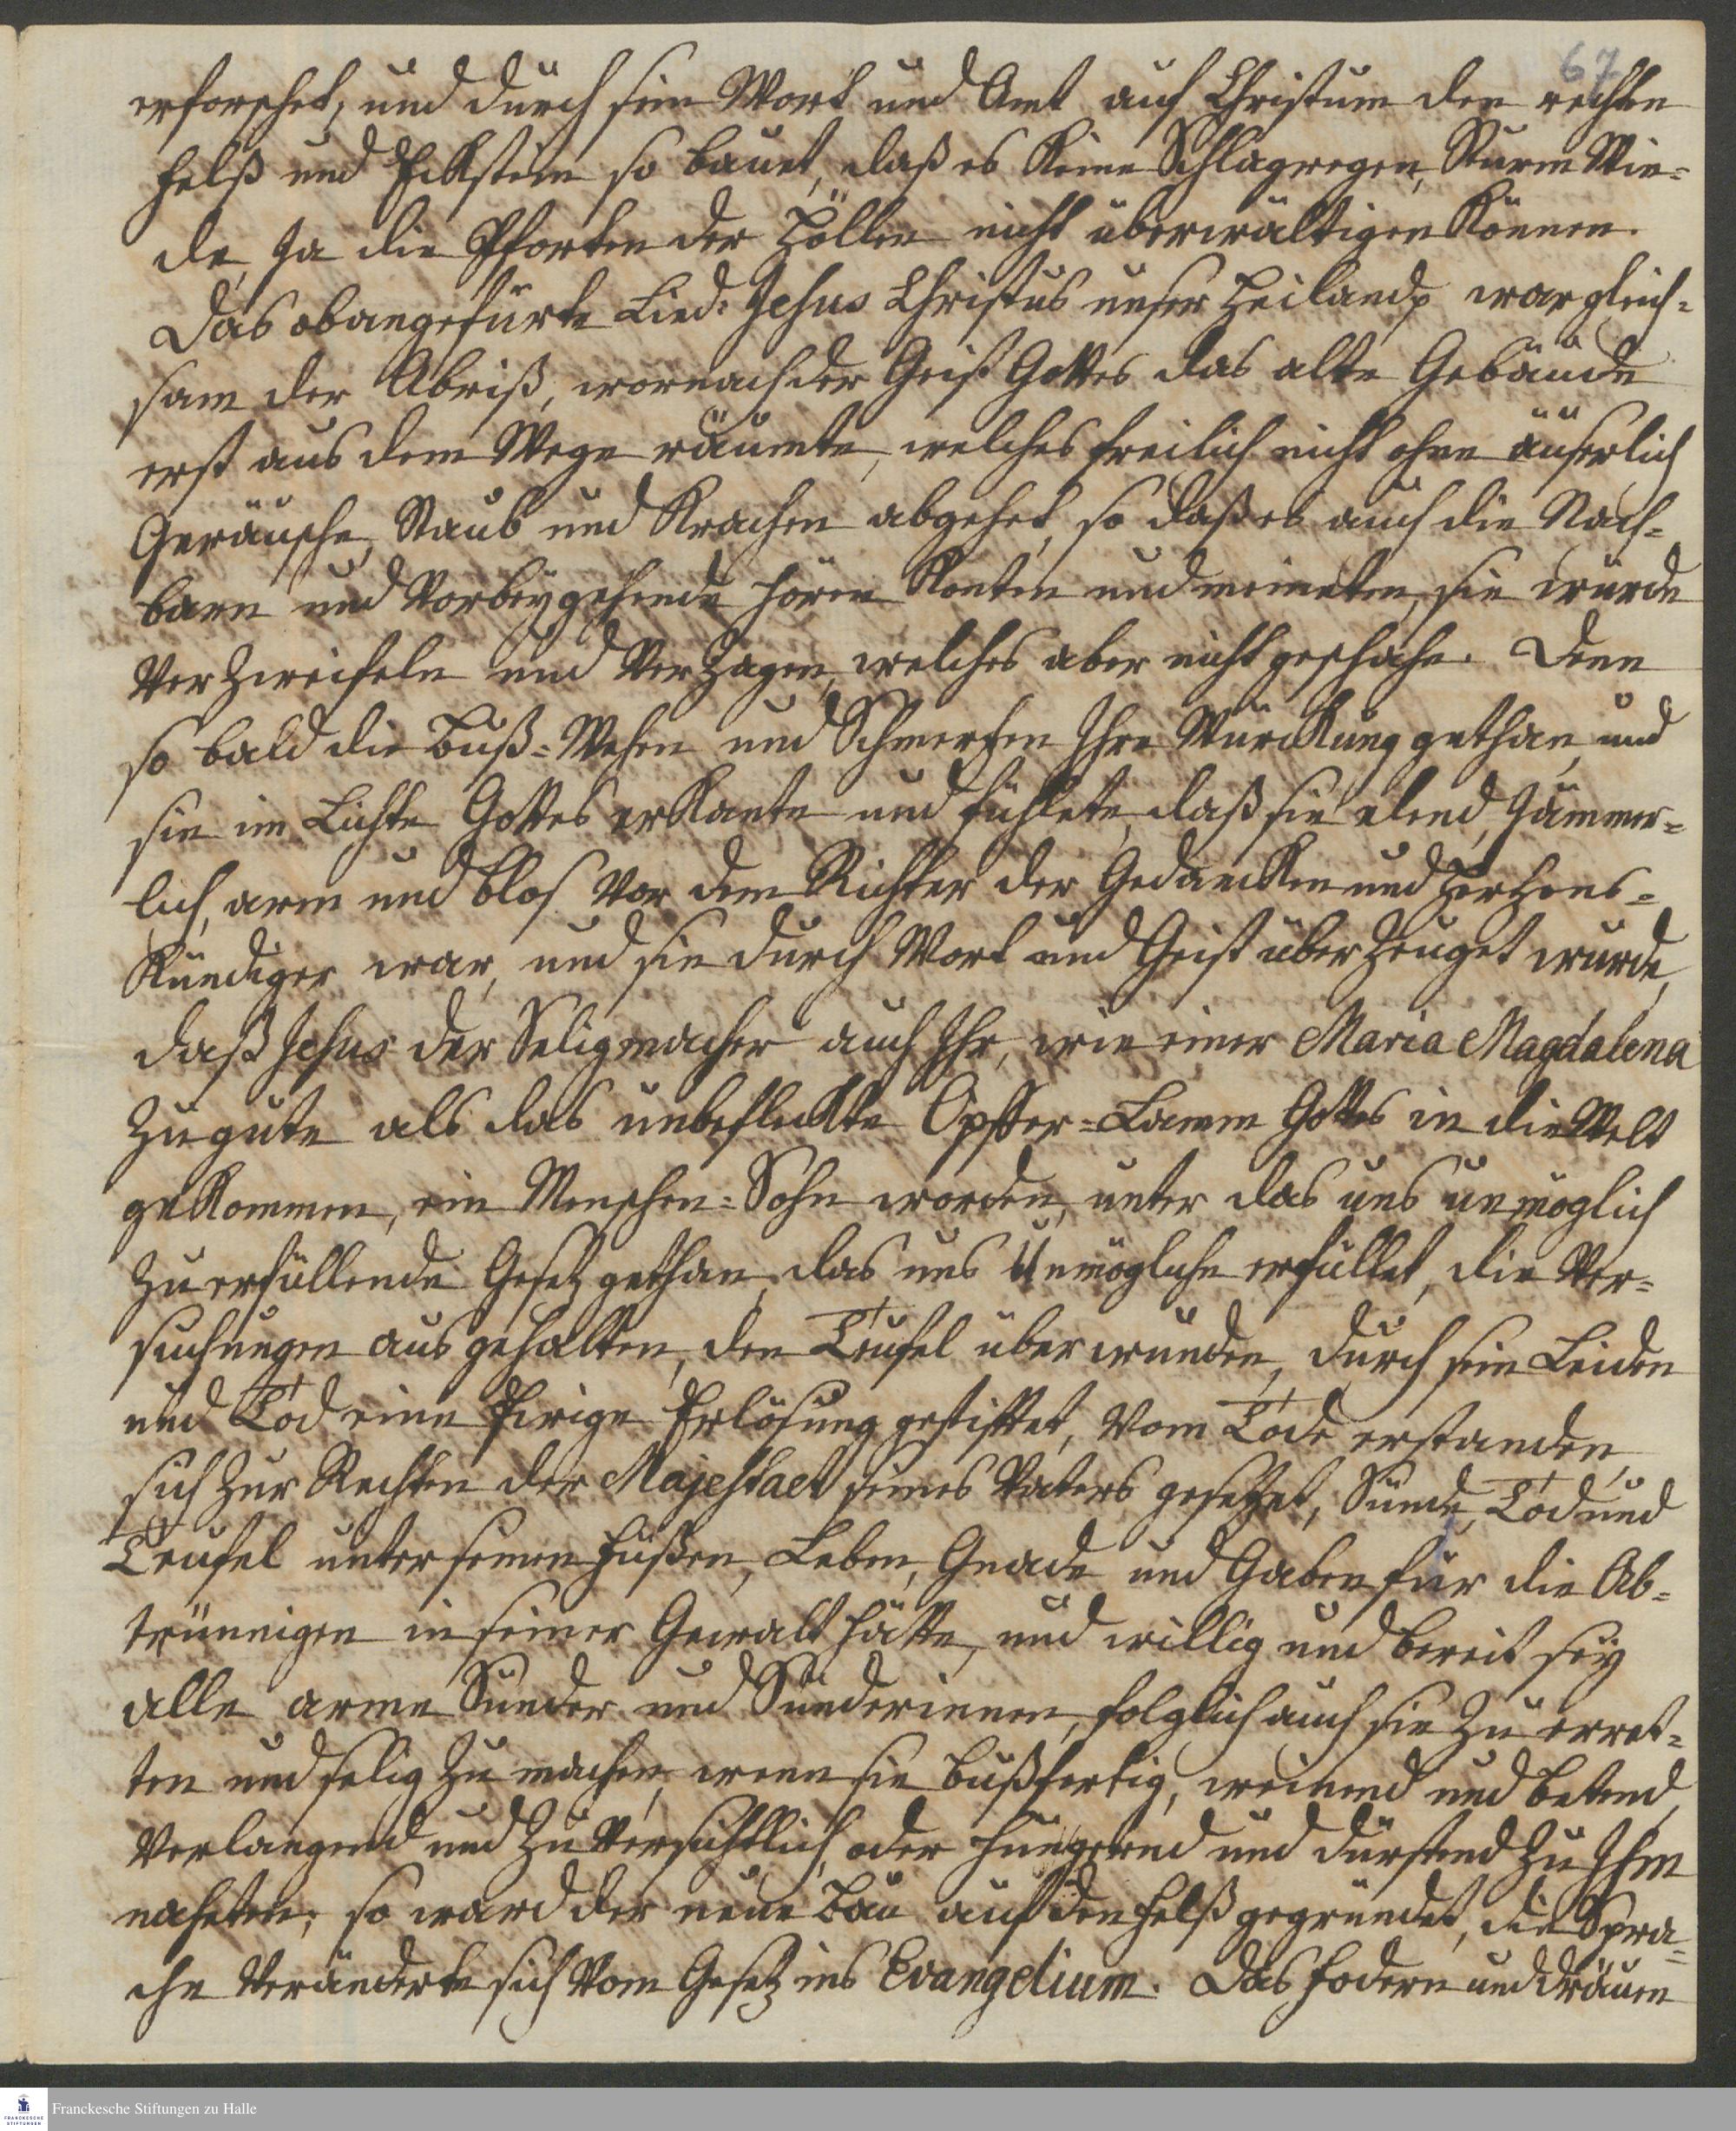 67
erforschet, und durch sein Wort und Amt auf Christum den rechten
Felß und Eckstein so bauet, daß es keine Schlagregen, Sturm Win-
de, Ja die Pforten der Höllen nicht überwältigen können.
Das obangefürte Lied: Jesus Christus unser Heiland war gleich-
sam der Abriß, wornach der Geist Gottes das alte Gebäude
erst aus dem Wege räumte, welches freilich nicht ohne äuserlich
Geräusche, Staub und Krachen abgehet, so daß es auch die Nach-
barn und Vorbeygehende hören konten und meineten, sie würde
Verzweifeln und Verzagen, welches aber nicht geschahe. Denn
so bald die Buß-Wehen und Schmertzen Ihre Würckung gethan, und
sie im Lichte Gottes erkante und fühlete, daß sie elend, Jämmer-
lich, arm und blos vor dem Richter der Gedancken und Hertzens-
Kündiger war, und sie durch Wort und Geist überzeuget wurde,
daß Jesus der Seligmacher auch Ihr, wie einer Maria Magdalena
zu gute als das unbefleckte Opffer-Lamm Gottes in die Welt
gekommen, ein Menschen-Sohn worden, unter das uns unmöglich
zu erfüllende Gesetz gethan, das uns Unmögliche erfüllet, die Ver-
suchungen ausgehalten, den Teufel überwunden, durch sein Leiden
und Tod eine Ewige Erlösung gestifftet, Vom Tode erstanden,
sich zur Rechten der Majestaet seines Vaters gesetzet, Sünde, Tod und
Teufel unter seinen Füßen, Leben, Gnade und Gaben für die Ab-
trünnigen in seiner Gewalt hätte, und willig und bereit sey
alle arme Sünder und Sünderinnen, folglich auch sie zu erret-
ten und selig zu machen, wenn sie bußfertig, weinend und betend,
Verlangend und zuversichtlich oder hungerend und dürstend zu Ihm
naheten; so ward der neue Bau auf den Felß gegründet, die Spra-
che Veränderte sich Vom Gesetz ins Evangelium. Das fodern und dräuen
Franckesche Stiftungen zu Halle